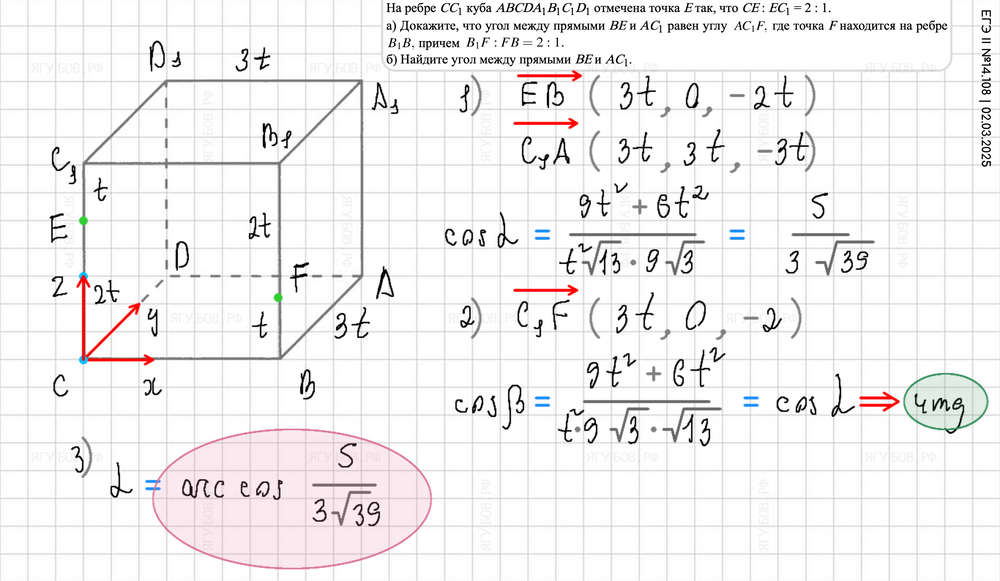 На ребре CC₁ куба ABCDA₁B₁C₁D₁ отмечена точка E так, что CE : EC₁ = 2 : 1.
а) Докажите, что угол между прямыми BE и AC₁ равен углу AC₁F, где точка F находится на ребре
B₁B, причем B₁F : FB = 2 : 1.
б) Найдите угол между прямыми BE и AC₁.
ЕГЭ II №14.108 | 02.03.2025
D₁ 3t A₁
B₁
C₁
t
E 2t
D F A
z 2t
y t 3t
C x B
1) EB (3t, 0, -2t)
C₁A (3t, 3t, -3t)
cos α = (9t² + 6t²) / (t²√13 · 9√3) = 5 / (3√39)
2) C₁F (3t, 0, -2)
cos β = (9t² + 6t²) / (t²·9√3 · √13) = cos α ⇒ чтд
3) α = arc cos 5 / (3√39)
ЯГУБОВ.РФ